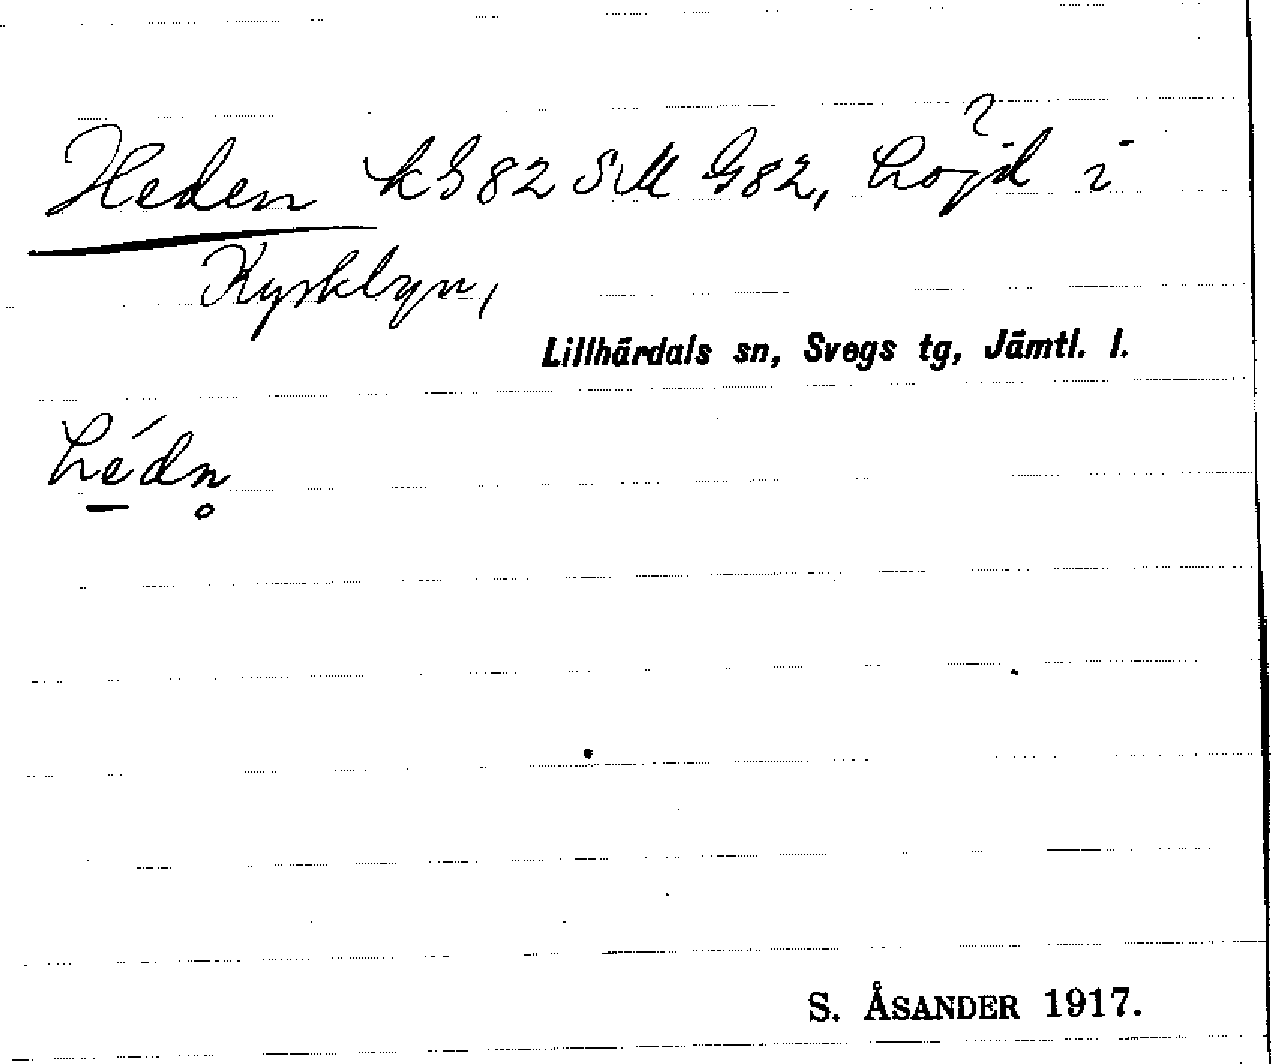 Heden kG82 SM G82, höjd ? i
Kyrkbyn,
Lillhärdals sn, Svegs tg, Jämtl. l.
hédn̥
S. ÅSANDER 1917.